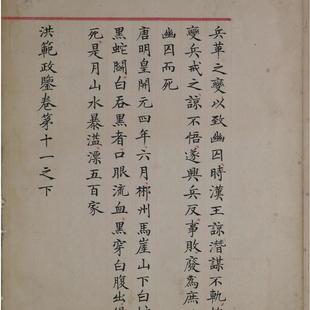 兵革之變以致幽囚時漢王諒潛謀不軌
變兵戒之諒不悟遂興兵反事敗廢為庶
幽囚而死
唐明皇開元四年六月郴州馬嶺山下白
黑蛇鬭白吞黑者口眼流血黑穿白腹出
死是月山水暴溢漂五百家
洪範政鑒卷第十一之下